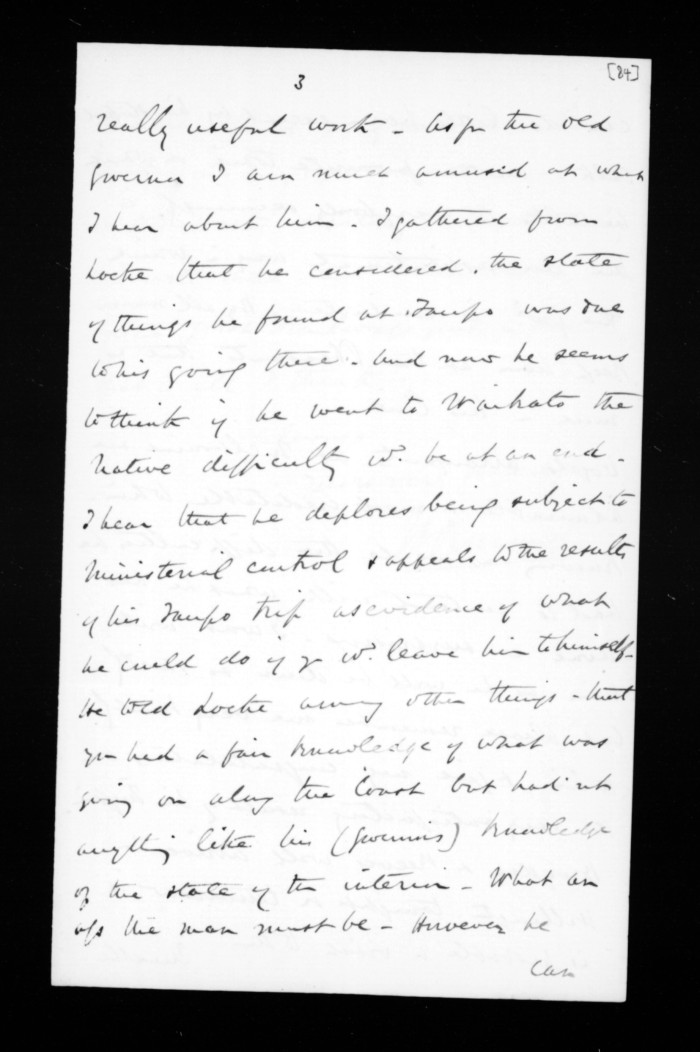 3
[84]
really useful work - As for the old
Governor I am much amused at what
I hear about him. I gathered from
Locke that he considered, the state
of things he found at Taupo was due
to his going there - and now he seems
to think if he went to Waikato the
Native difficulty wd. be at an end -
I hear that he deplores being subject to
Ministerial control & appeals to the results
of his Taupo trip as evidence of what
he could do if y wd. leave him to himself -
He told Locke among other things - that
you had a fair knowledge of what was
going on along the Coast but had not
anything like his (Governors) knowledge
of the state of the interior - What an
ass the man must be - However he
can